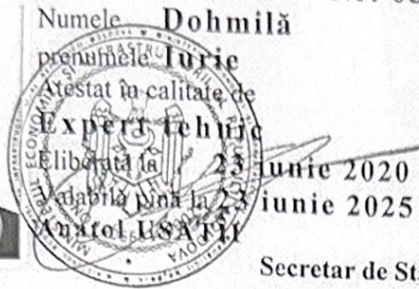 Numele Dohmilă
prenumele Iurie
Atestat în calitate de
Expert tehnic
Eliberată la 23 iunie 2020
Valabilă pină la 23 iunie 2025
Anatol USATÎI
Secretar de St